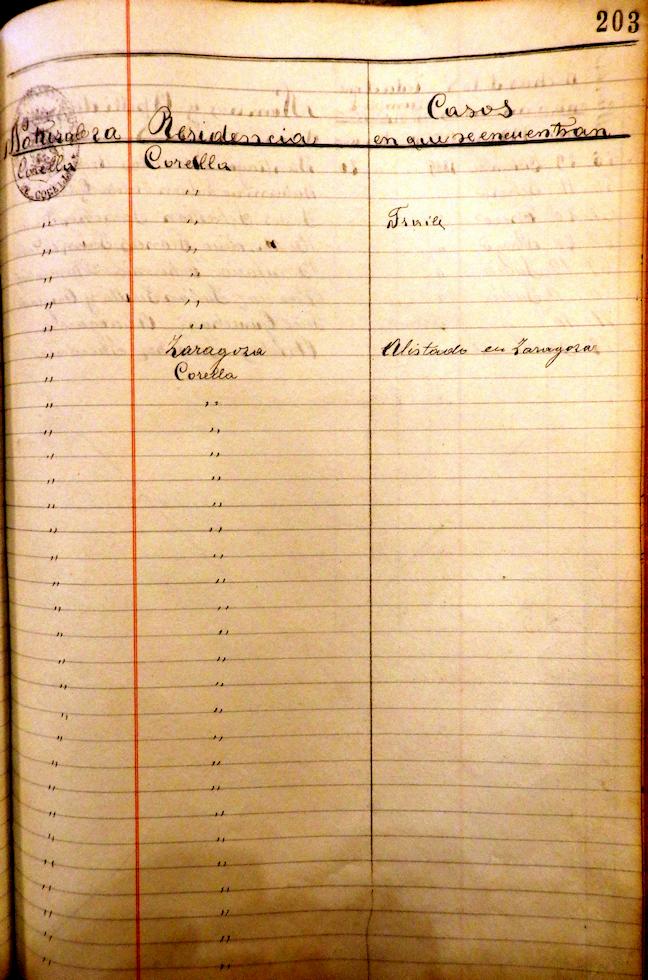 203
Casos
Naturaleza Residencia en que se encuentran
Corella Corella
" "
" " Fraile
" "
" "
" "
" "
" Zaragoza Alistado en Zaragoza
" Corella
" "
" "
" "
" "
" "
" "
" "
" "
" "
" "
" "
" "
" "
" "
" "
" "
" "
" "
" "
" "
" "
" "